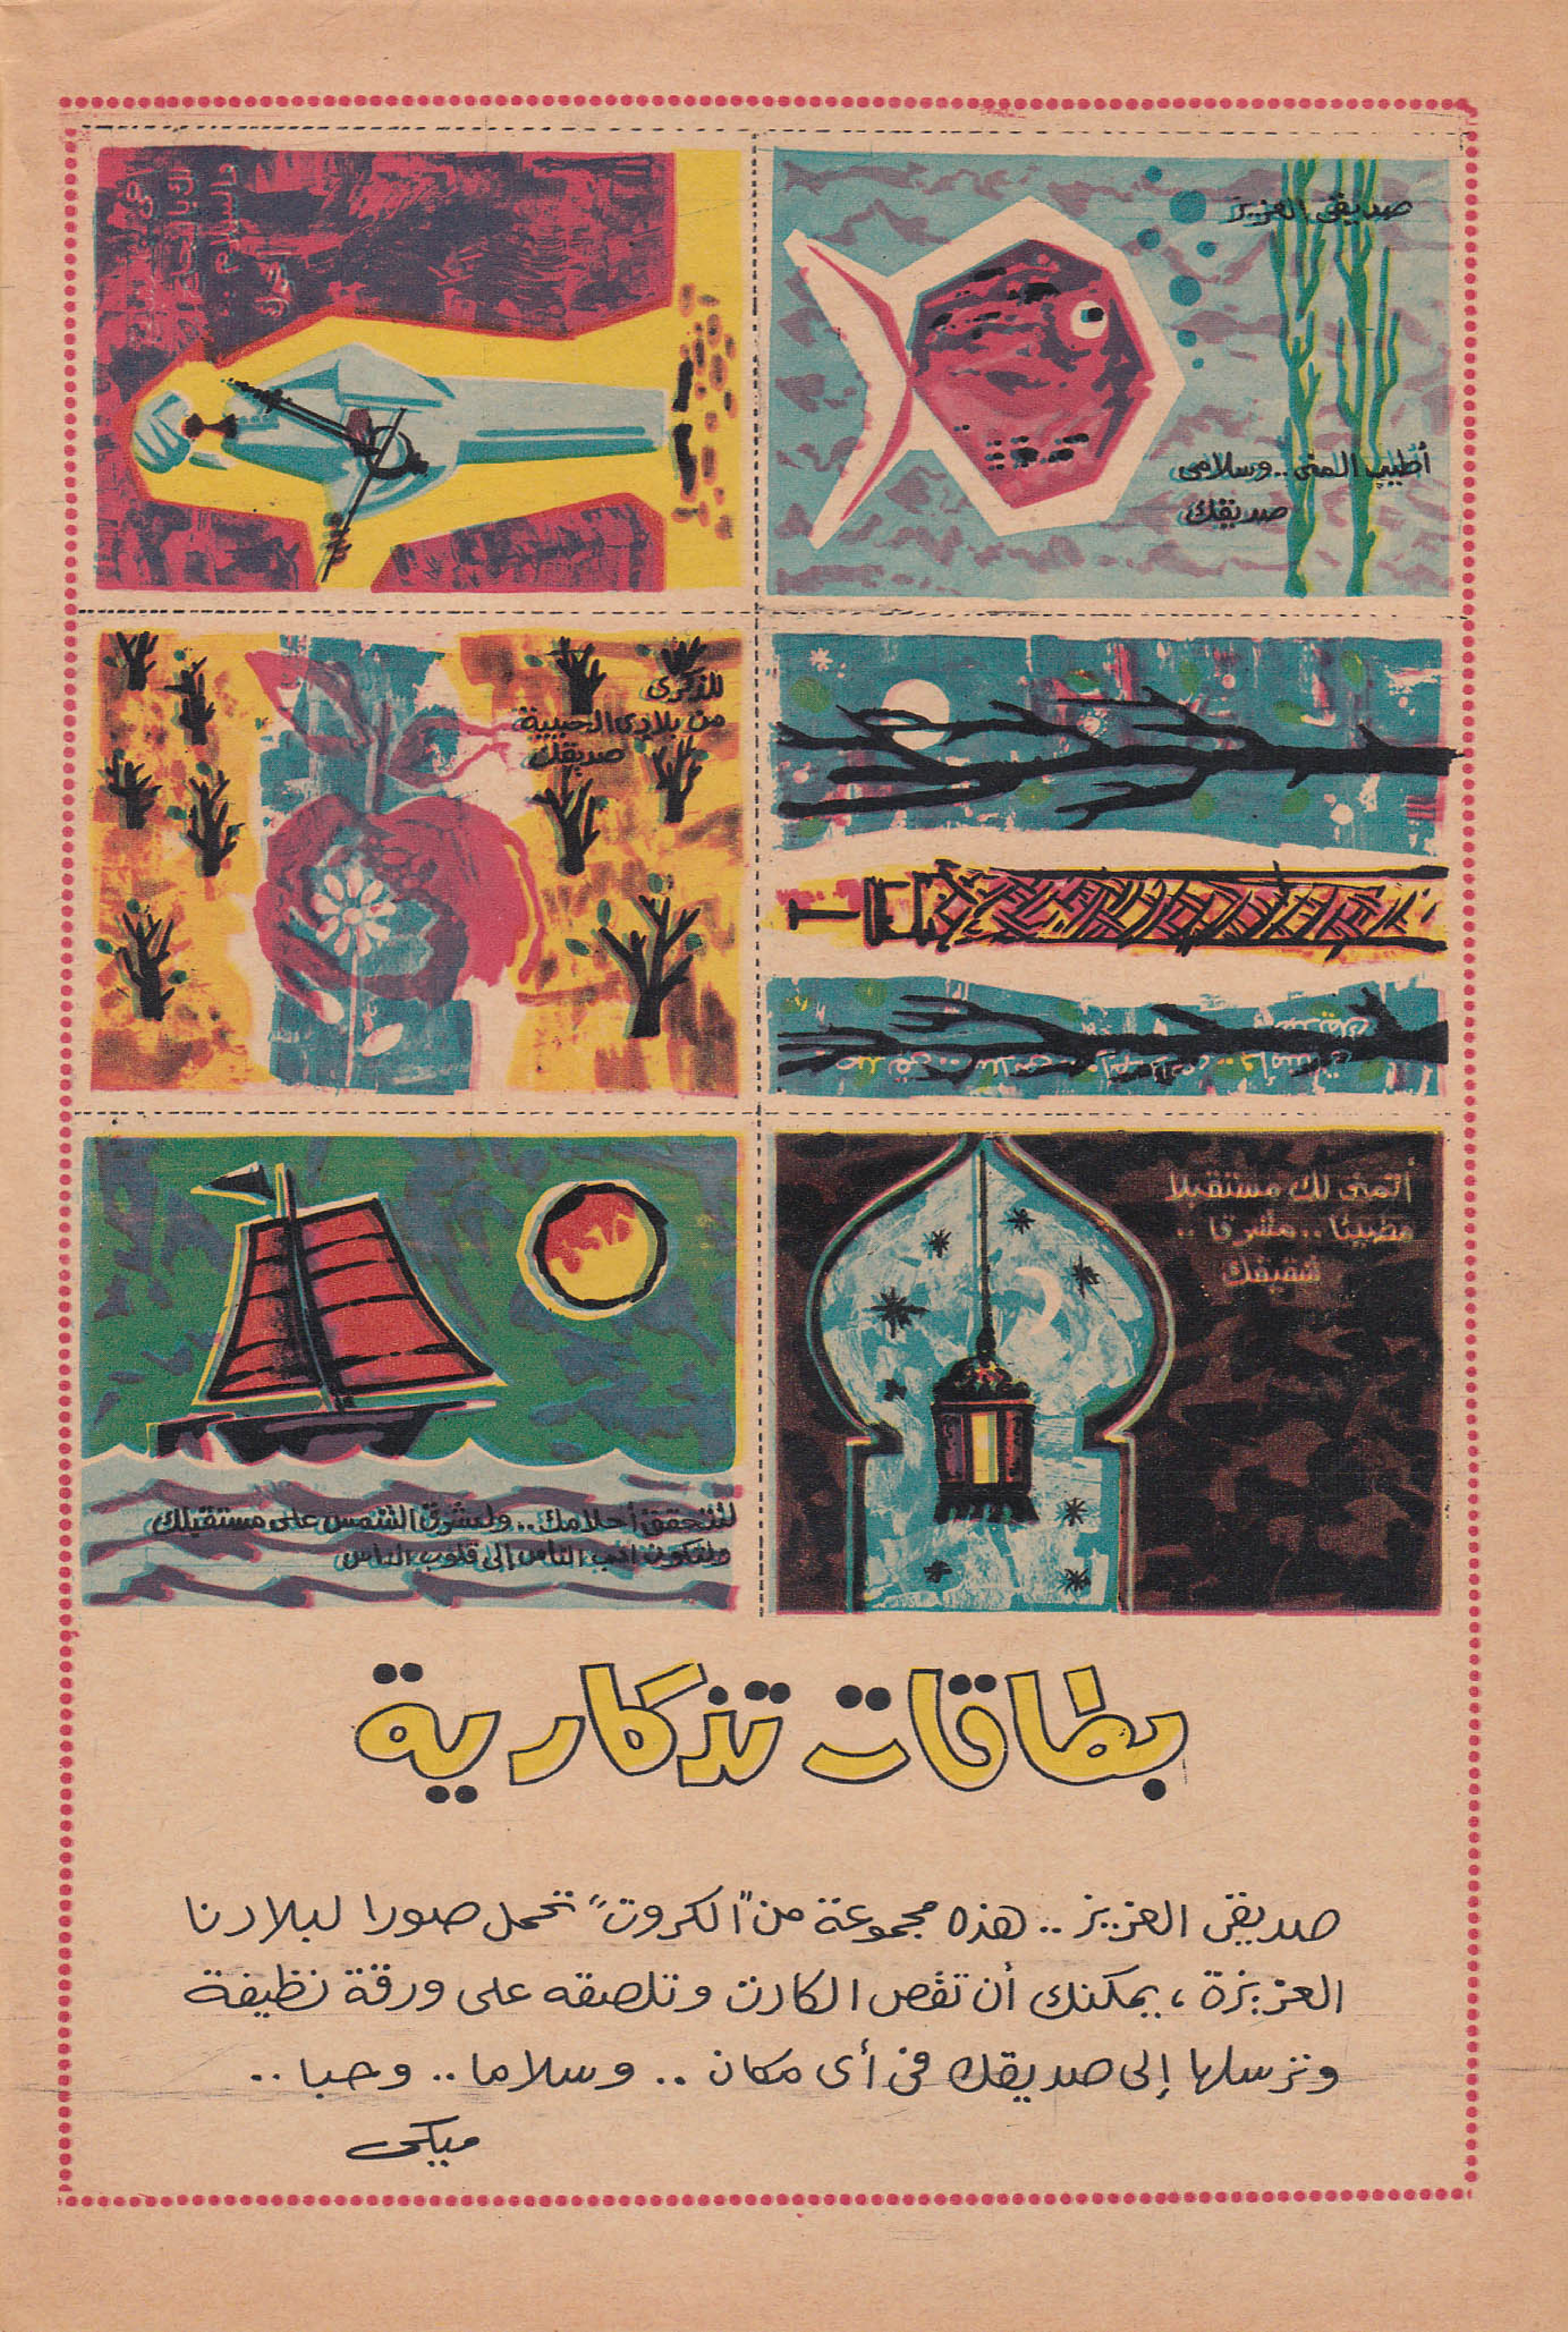 صديقى العزيز
أطيب المنى .. وسلامى
صديقك
للذكرى
من بلادى الحبيبة
صديقك
أتمنى لك مستقبلا
مضيئا .. مشرقا ..
شقيقك
لتتحقق أحلامك .. ولتشرق الشمس على مستقبلك
ولتكون أحب الناس إلى قلوب الناس
بطاقات تذكارية
صديقى العزيز .. هذه مجموعة من "الكروت" تحمل صورا لبلادنا
العزيزة ، يمكنك أن تقص الكارت وتلصقه على ورقة نظيفة
وترسلها إلى صديقك فى أى مكان .. وسلاما .. وحبا ..
ميكى